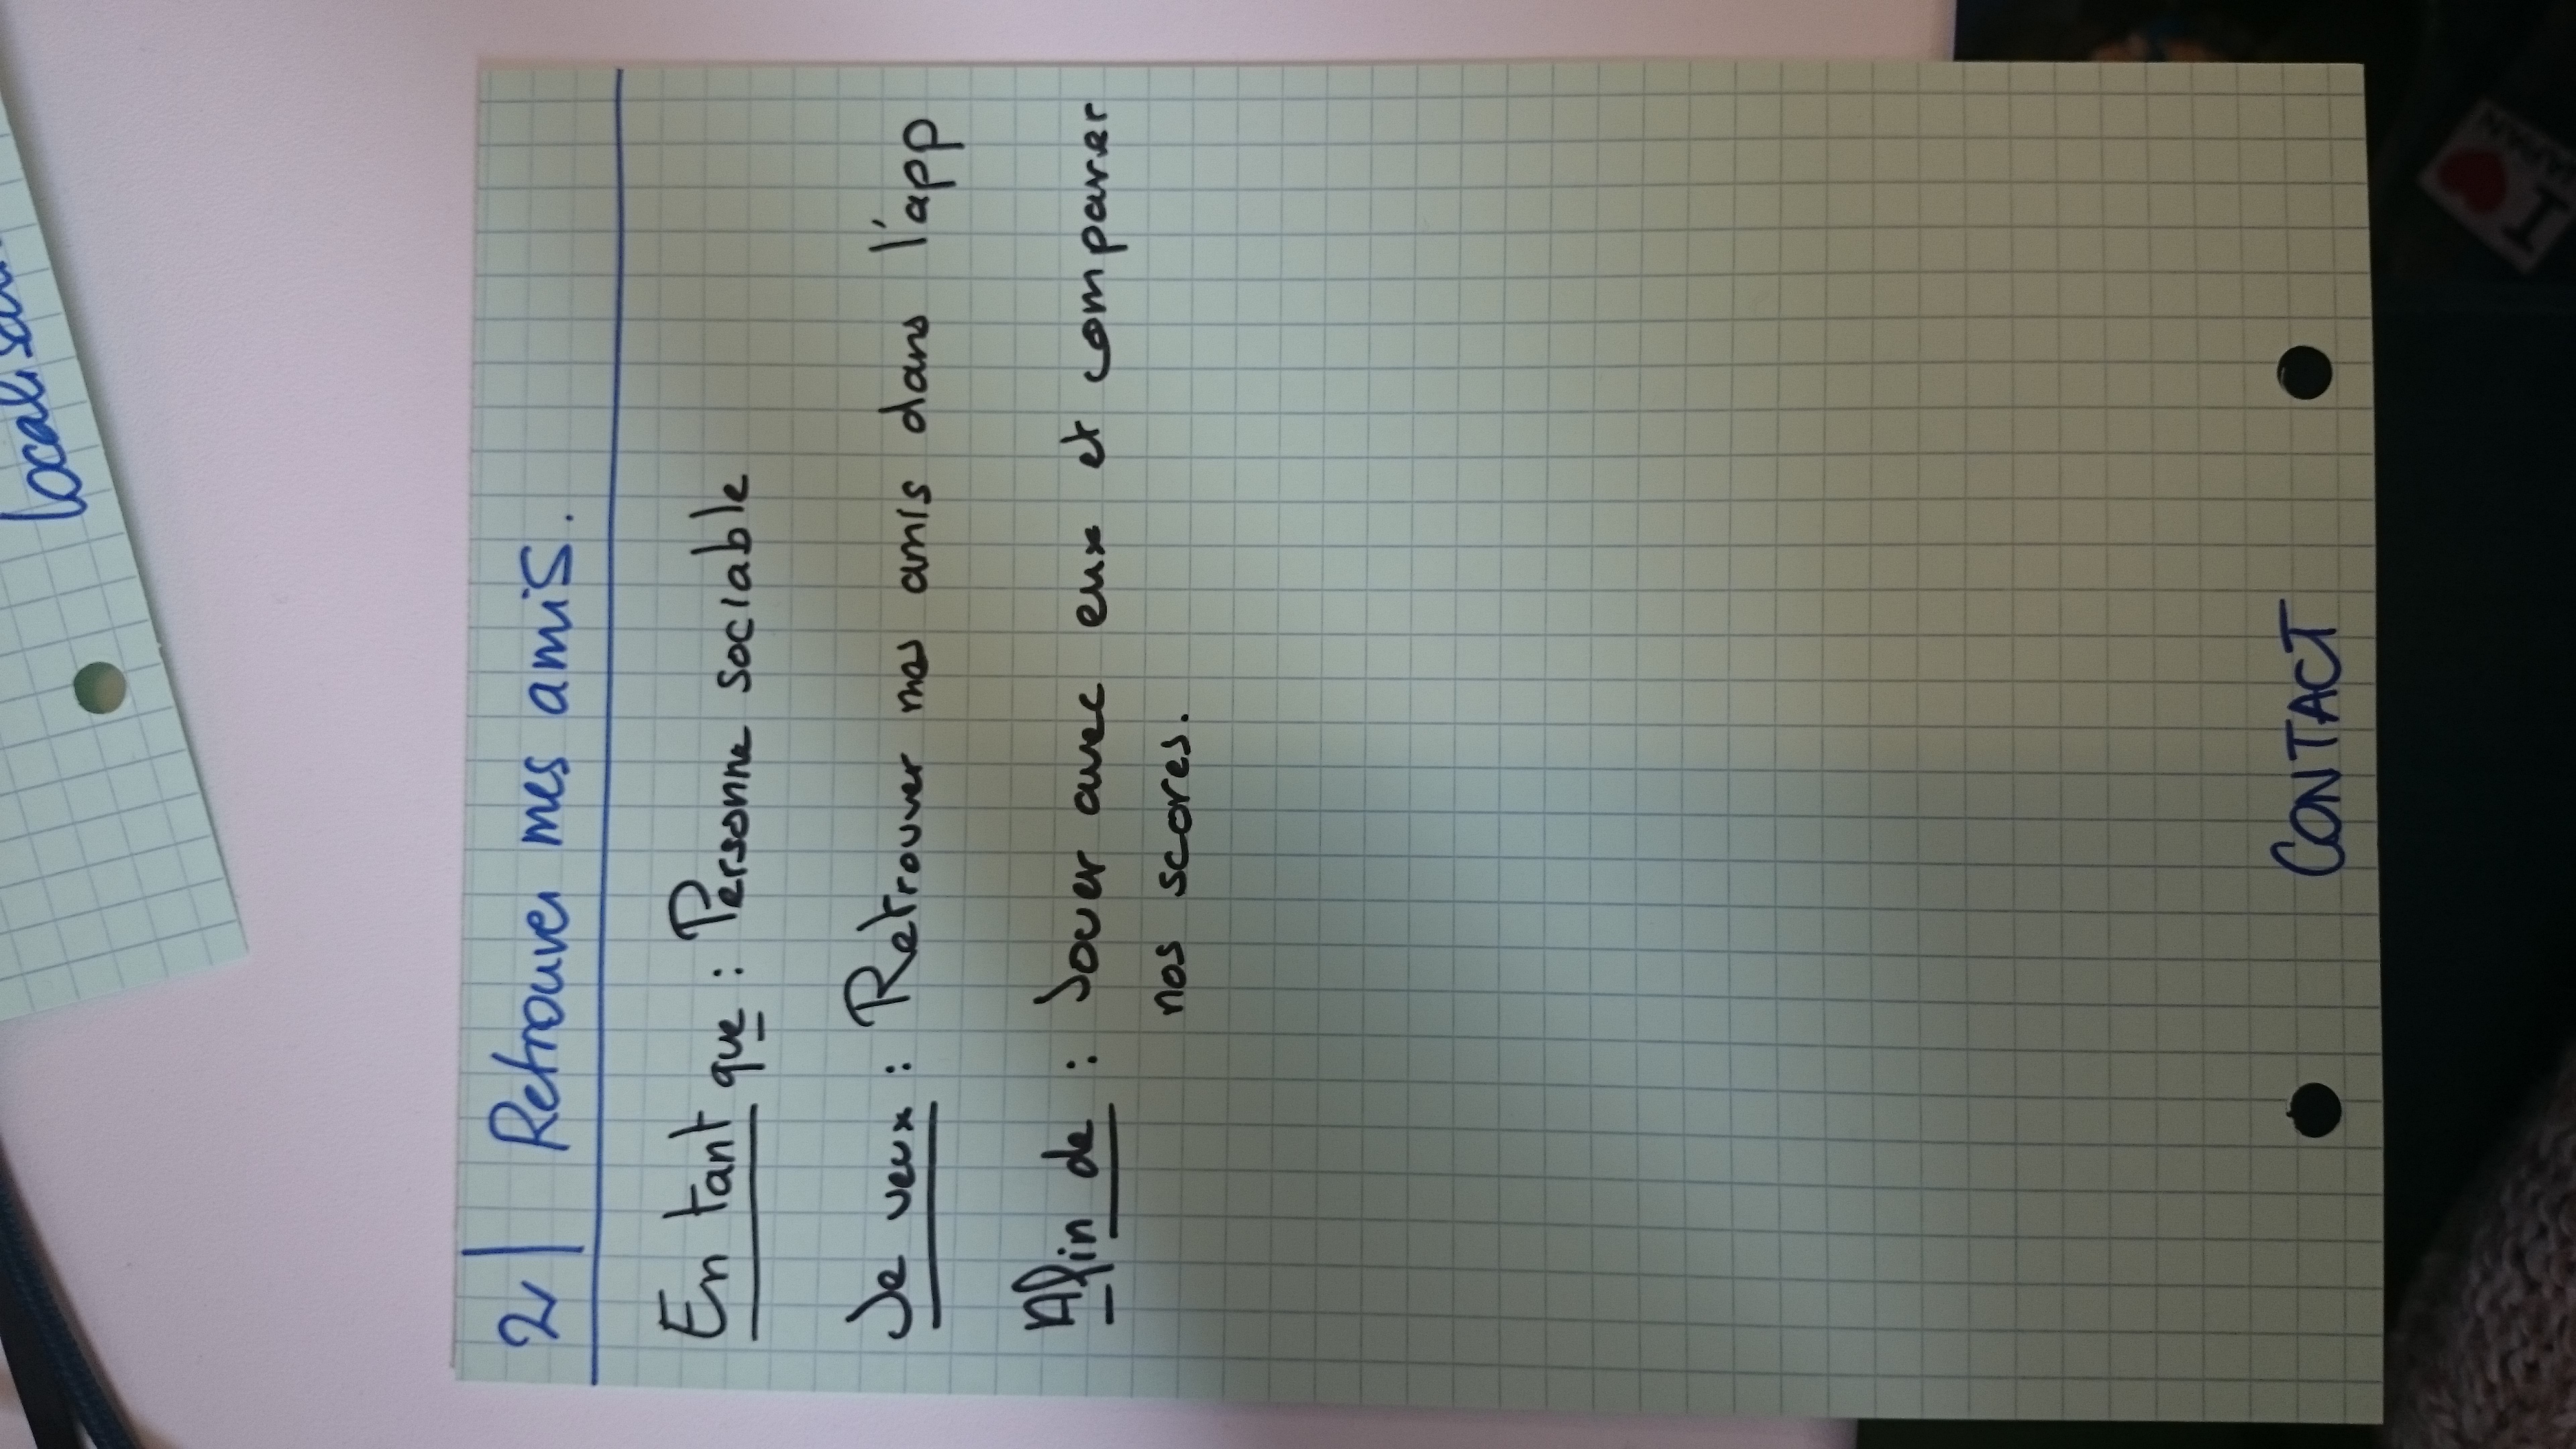 2 | Retrouver mes amis.
En tant que : Personne sociable
Je veux : Retrouver mes amis dans l'app
Afin de : Jouer avec eux et comparer
nos scores.
CONTACT